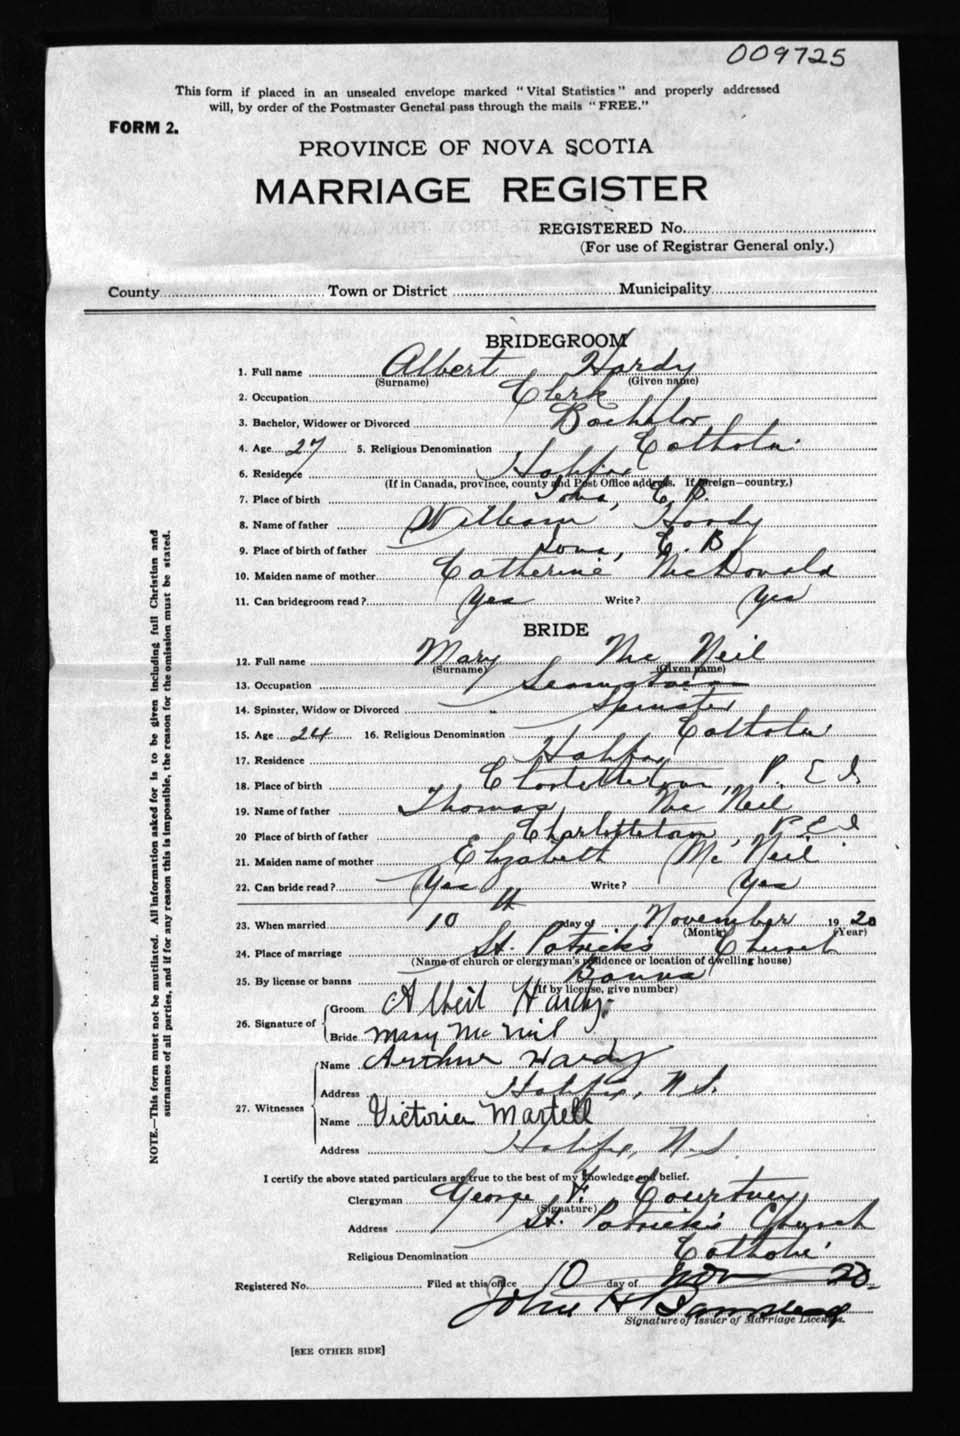 009725
This form if placed in an unsealed envelope marked "Vital Statistics" and properly addressed
will, by order of the Postmaster General pass through the mails "FREE."
FORM 2.
PROVINCE OF NOVA SCOTIA
MARRIAGE REGISTER
REGISTERED No.
(For use of Registrar General only.)
County Town or District Municipality
BRIDEGROOM
1. Full name Albert Hardy
(Surname) (Given name)
2. Occupation Clerk
3. Bachelor, Widower or Divorced Bachelor
4. Age 27 5. Religious Denomination Catholic
6. Residence Halifax
(If in Canada, province, county and Post Office address. If foreign—country.)
7. Place of birth Iona, C. B.
8. Name of father William Hardy
9. Place of birth of father Iona, C. B
10. Maiden name of mother Catherine McDonald
11. Can bridegroom read? Yes Write? Yes
BRIDE
12. Full name Mary Mc Neil
(Surname) (Given name)
13. Occupation
14. Spinster, Widow or Divorced Spinster
15. Age 24 16. Religious Denomination Catholic
17. Residence Halifax
18. Place of birth Charlottetown P. E I.
19. Name of father Thomas Mc Neil
20 Place of birth of father Charlottetown, P E I.
21. Maiden name of mother Elizabeth Mc Neil
22. Can bride read? Yes Write? Yes
23. When married 10th day of November 1920
(Month) (Year)
24. Place of marriage St. Patrick's Church
(Name of church or clergyman's residence or location of dwelling house)
25. By license or banns Banns
(If by license, give number)
26. Signature of Groom Albert Hardy
Bride Mary Mc Neil
27. Witnesses Name Arthur Hardy
Address Halifax, N.S.
Name Victoria Martell
Address Halifax, N.S.
I certify the above stated particulars are true to the best of my knowledge and belief.
Clergyman George F. Courtney
(Signature)
Address St. Patrick's Church
Religious Denomination Catholic
Registered No. Filed at this office 10 day of Nov 20
John H
Signature of Issuer of Marriage Licenses.
[SEE OTHER SIDE]
NOTE.—This form must not be mutilated. All information asked for is to be given including full Christian and
surnames of all parties, and if for any reason this is impossible, the reason for the omission must be stated.